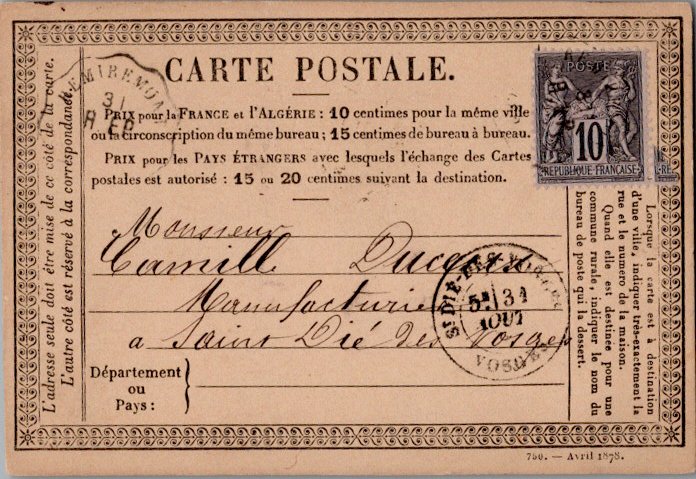 CARTE POSTALE.
PRIX pour la FRANCE et l'ALGÉRIE : 10 centimes pour la même ville
ou la circonscription du même bureau ; 15 centimes de bureau à bureau.
PRIX pour les PAYS ÉTRANGERS avec lesquels l'échange des Cartes
postales est autorisé : 15 ou 20 centimes suivant la destination.
POSTE
10
REPUBLIQUE FRANÇAISE
31
Monsieur
Camille
Manufacturier
a Saint Dié des Vosges
ST DIE
5E 31
AOUT
VOSGES
Département
ou
Pays :
L'adresse seule doit être mise de ce côté de la carte.
L'autre côté est réservé à la correspondance.
Lorsque la carte est à destination
d'une ville, indiquer très-exactement la
rue et le numéro de la maison.
Quand elle est destinée pour une
commune rurale, indiquer le nom du
bureau de poste qui la dessert.
750. — Avril 1878.